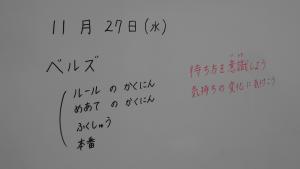 11月27日(水)
ベルズ
ルール の かくにん
めあて の かくにん
ふくしゅう
本番
待ち方を意識しよう
気持ちの変化に気付こう